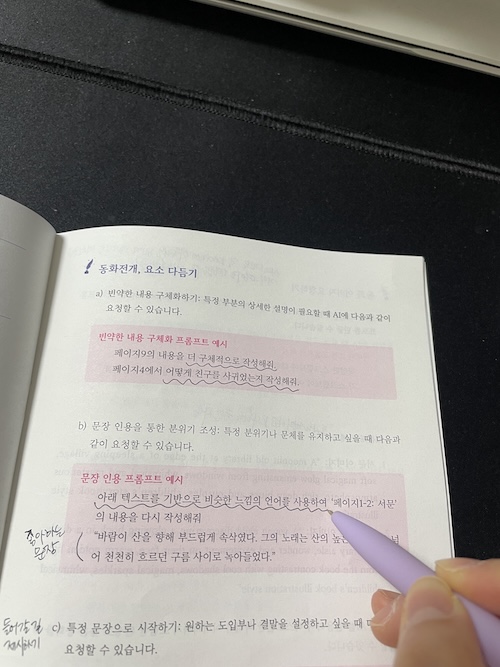 동화전개, 요소 다듬기
a) 빈약한 내용 구체화하기: 특정 부분의 상세한 설명이 필요할 때 AI에 다음과 같이
요청할 수 있습니다.
빈약한 내용 구체화 프롬프트 예시
페이지9의 내용을 더 구체적으로 작성해줘.
페이지4에서 어떻게 친구를 사귀었는지 작성해줘.
b) 문장 인용을 통한 분위기 조성: 특정 분위기나 문체를 유지하고 싶을 때 다음과
같이 요청할 수 있습니다.
문장 인용 프롬프트 예시
아래 텍스트를 기반으로 비슷한 느낌의 언어를 사용하여 '페이지1-2: 서문'
의 내용을 다시 작성해줘
"바람이 산을 향해 부드럽게 속삭였다. 그의 노래는 산의 높은
어 천천히 흐르던 구름 사이로 녹아들었다."
좋아하는
문장
c) 특정 문장으로 시작하기: 원하는 도입부나 결말을 설정하고 싶을 때
요청할 수 있습니다.
들어갈 길
제시하기